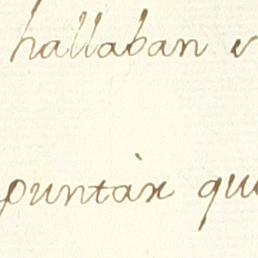 hallaban
puntàr qu